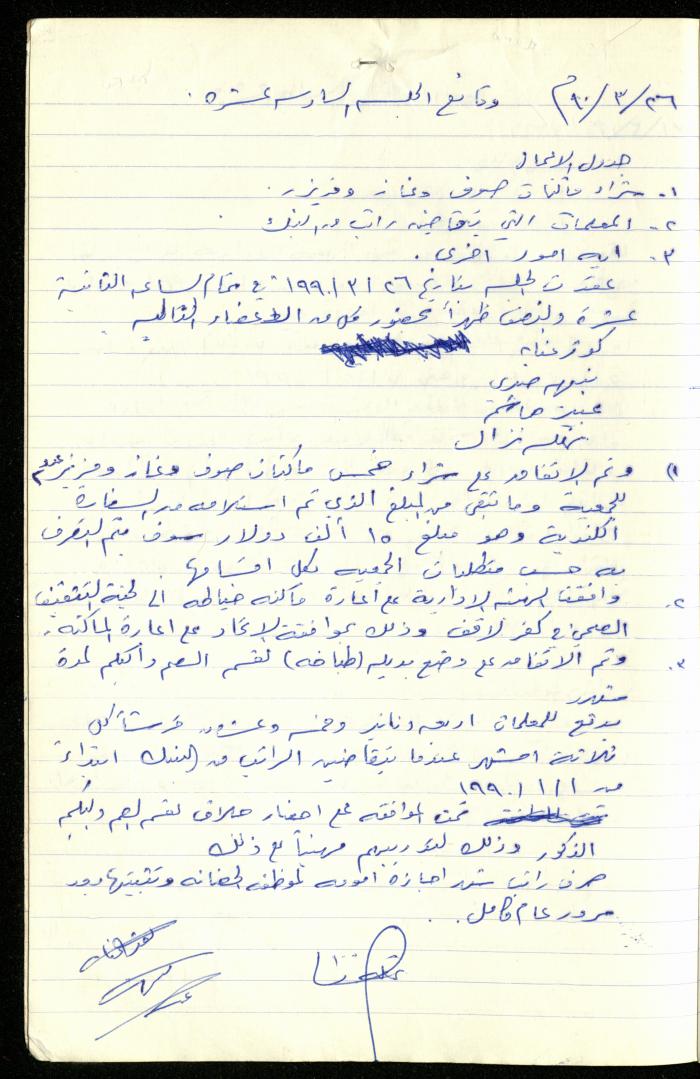 ٢٦/٣/٩٠م وقائع الجلسه السادسه عشره .
جدول الاعمال
١- شراء ماكنات صوف وغاز وفريزر .
٢- المعلمات التي يتقاضين راتب من البنك
٣- ايه امور اخرى .
عقدت الجلسه بتاريخ ٢٦/٣/١٩٩٠ في تمام الساعه الثانية
عشرة والنصف ظهراً بحضور كل من الاعضاء التاليه
كوثر عنايه
نبيهه صبري
عبير هاشم
نزال
١) وتم الاتفاق على شراء خمس ماكنات صوف وغاز وفريزر
للجمعية وما تبقى من المبلغ الذي تم استلامه من السفارة
الكندية وهو مبلغ ١٥ ألف دولار سوف يتم التصرف
به حسب متطلبات الجمعيه بكل اقسامها .
٢. وافقت الهيئه الادارية على اعارة ماكنه خياطه الى لجنة التثقيف
الصحي في كفر لاقف وذلك بموافقة الاتحاد على اعارة الماكنه .
٣. وتم الاتفاق على وضع بديله (طباخه) لقسم الصم وأبكم لمدة
شهر
يدفع للمعلمات اربعه دنانير وخمسه وعشرون قرشاً كل
ثلاثة اشهر عندما يتقاضين الراتب من البنك ابتداءً
من ١/١/١٩٩٠
تمت الموافقه على احضار حلاق لقسم الصم والبكم
الذكور وذلك لتدريبهم مهنياً على ذلك
صرف راتب شهر اجازة امومه لموظفه الحضانه وتثبيتها بعد
مرور عام كامل .